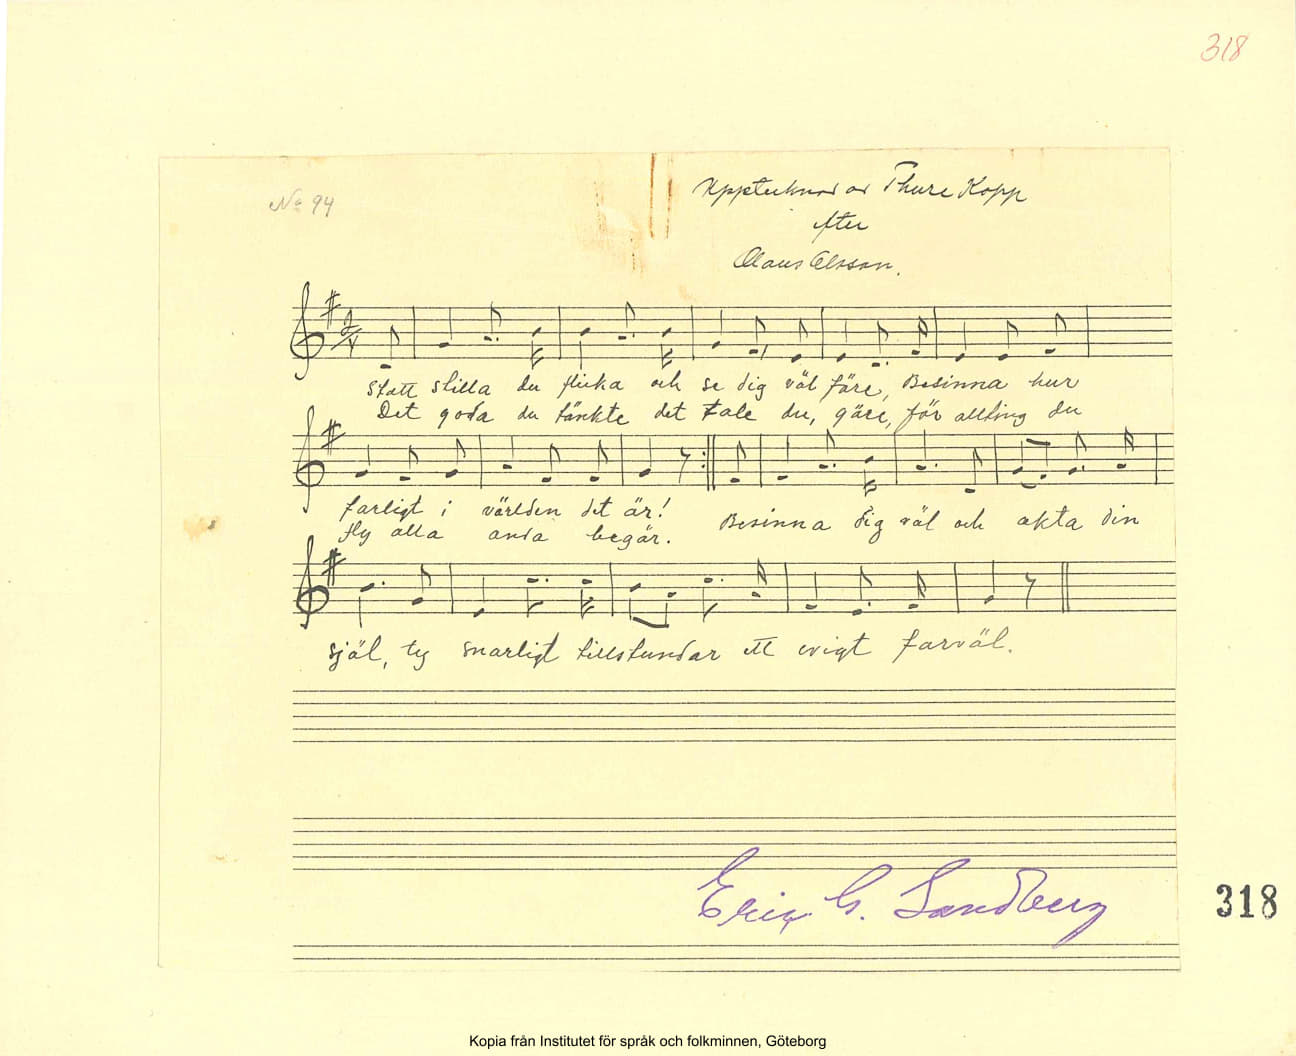 318
No 94
Upptecknad av Thure Kopp
efter
Olaus Olsson.
Statt stilla du flicka och se dig väl före, Besinna hur
Det goda du tänkte det tale du, göre, för allting du
farligt i världen det är!
fly alla onda begär.
Besinna dig väl och akta din
själ, ty snarligt tillstundar ett evigt farväl.
Eric G. Sandberg
318
Kopia från Institutet för språk och folkminnen, Göteborg